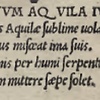 TVM AQVILA IV
s Aquilæ sublime uola
us misceat ima suis.
nis per humi serpenti
m mittere sæpe solet.